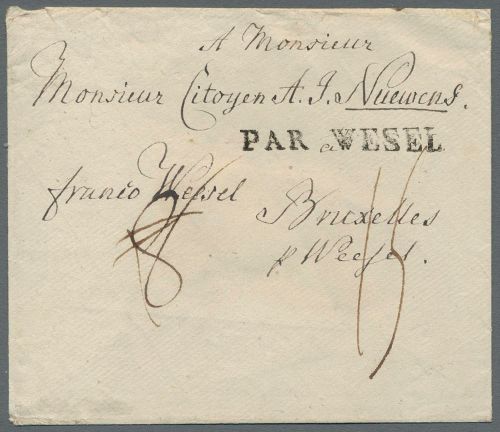 A Monsieur
Monsieur Citoyen A. J. Nuewens.
PAR WESEL
a
franco Wessel
Bruxelles
p Weesel.